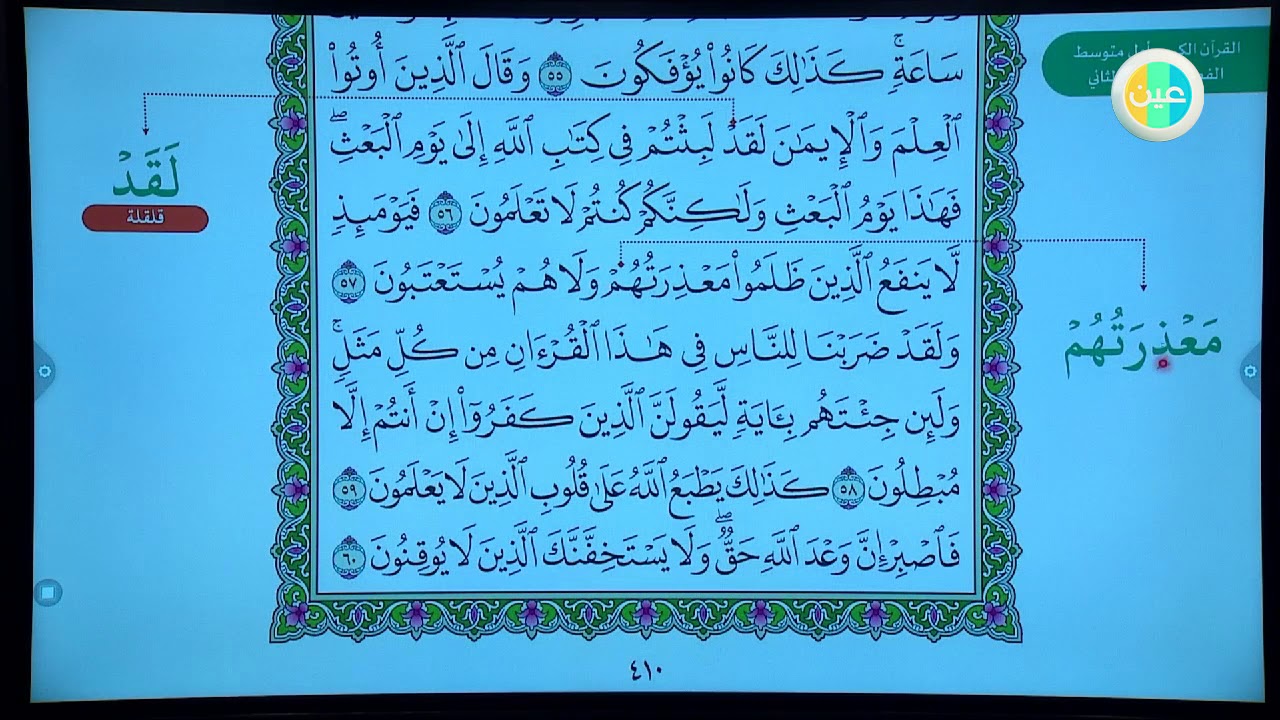 القرآن الكريم أول متوسط
الثاني
عين
سَاعَةٍۚ كَذَٰلِكَ كَانُوا۟ يُؤۡفَكُونَ ٥٥ وَقَالَ ٱلَّذِينَ أُوتُوا۟
ٱلۡعِلۡمَ وَٱلۡإِيمَٰنَ لَقَدۡ لَبِثۡتُمۡ فِي كِتَٰبِ ٱللَّهِ إِلَىٰ يَوۡمِ ٱلۡبَعۡثِۖ
فَهَٰذَا يَوۡمُ ٱلۡبَعۡثِ وَلَٰكِنَّكُمۡ كُنتُمۡ لَا تَعۡلَمُونَ ٥٦ فَيَوۡمَئِذٖ
لَّا يَنفَعُ ٱلَّذِينَ ظَلَمُوا۟ مَعۡذِرَتُهُمۡ وَلَا هُمۡ يُسۡتَعۡتَبُونَ ٥٧
وَلَقَدۡ ضَرَبۡنَا لِلنَّاسِ فِي هَٰذَا ٱلۡقُرۡءَانِ مِن كُلِّ مَثَلٖۚ
وَلَئِن جِئۡتَهُم بِـَٔايَةٖ لَّيَقُولَنَّ ٱلَّذِينَ كَفَرُوٓا۟ إِنۡ أَنتُمۡ إِلَّا
مُبۡطِلُونَ ٥٨ كَذَٰلِكَ يَطۡبَعُ ٱللَّهُ عَلَىٰ قُلُوبِ ٱلَّذِينَ لَا يَعۡلَمُونَ ٥٩
فَٱصۡبِرۡ إِنَّ وَعۡدَ ٱللَّهِ حَقّٞۖ وَلَا يَسۡتَخِفَّنَّكَ ٱلَّذِينَ لَا يُوقِنُونَ ٦٠
٤١٠
مَعۡذِرَتُهُمۡ
لَقَدۡ
قلقلة